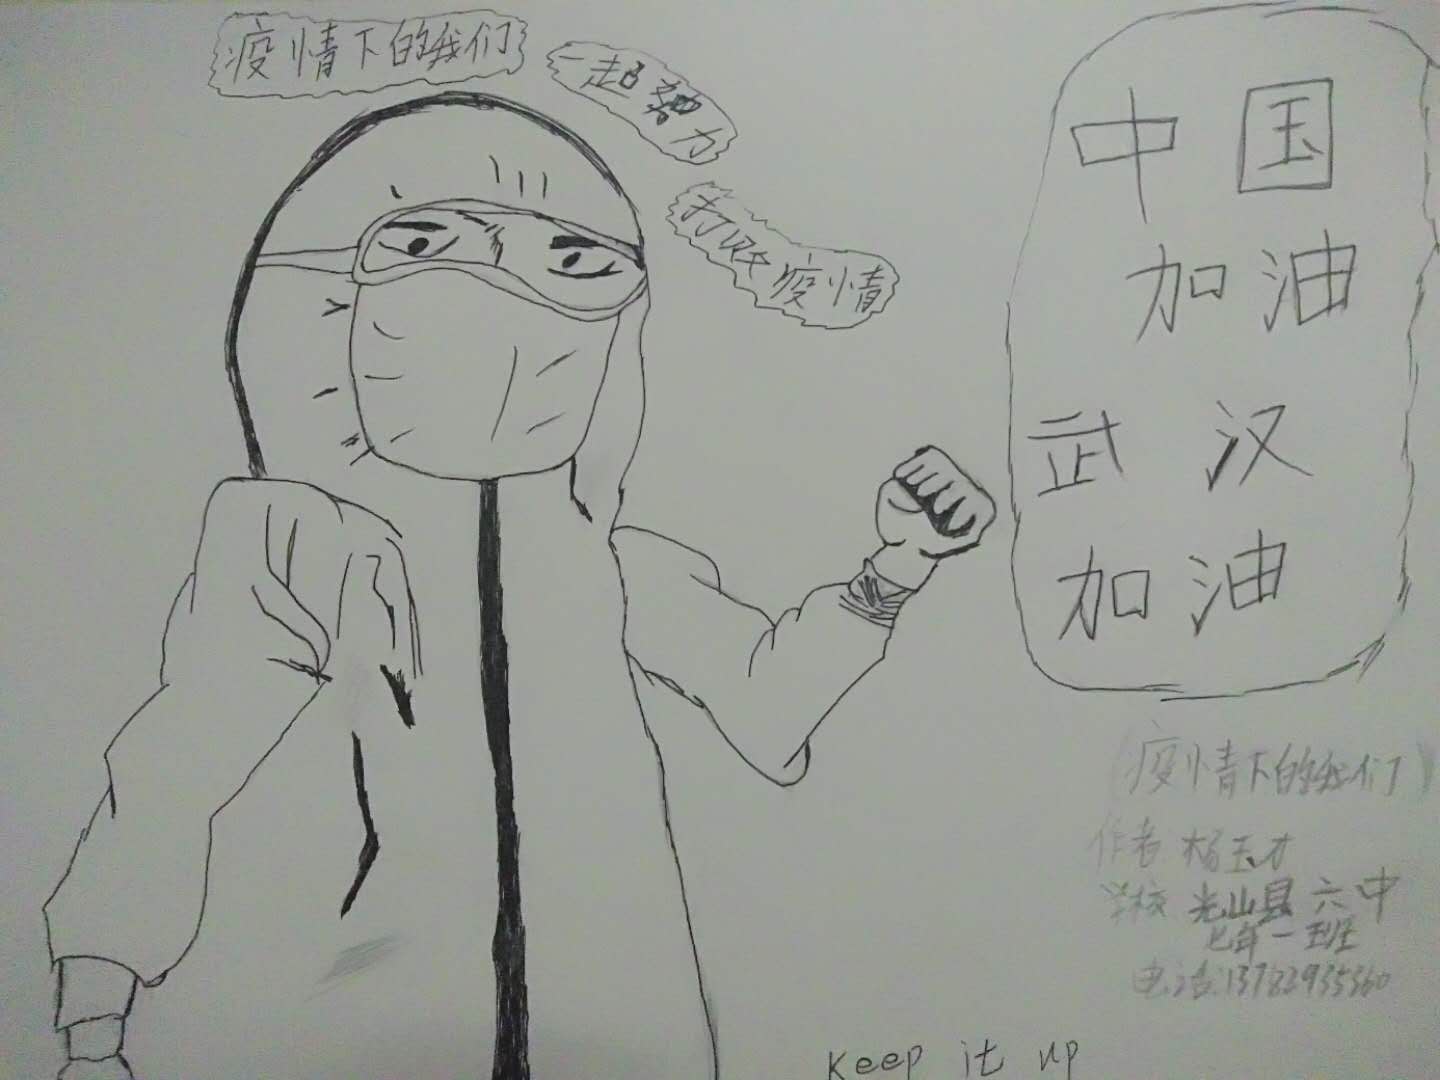 疫情下的我们
一起努力
打败疫情
中国
加油
武汉
加油
(疫情下的我们)
作者 杨玉才
学校 光山县六中
七年一班
电话:13782935360
Keep it up